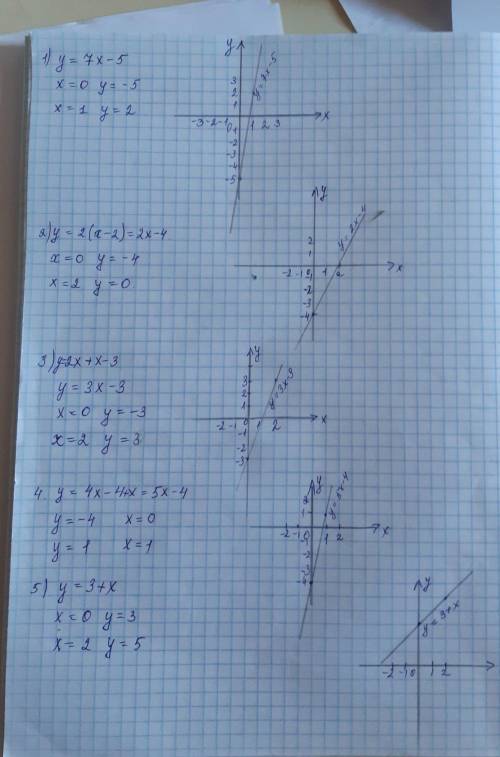 1) y = 7x-5
x=0 y=-5
x=1 y=2
y
3
2
1
-3 -2 -1 0 1 2 3 x
-1
-2
-3
-4
-5
y=7x-5
2) y = 2(x-2)=2x-4
x=0 y=-4
x=2 y=0
y
2
1
-2 -1 0 1 2 x
-1
-2
-3
-4
y=2x-4
3) y=2x+x-3
y=3x-3
x=0 y=-3
x=2 y=3
y
3
2
1
-2 -1 0 1 2 x
-1
-2
-3
y=3x-3
4. y=4x-4+x=5x-4
y=-4 x=0
y=1 x=1
y
2
1
-2 -1 0 1 2 x
y=5x-4
5) y=3+x
x=0 y=3
x=2 y=5
y
y=3+x
-2 -1 0 1 2 x